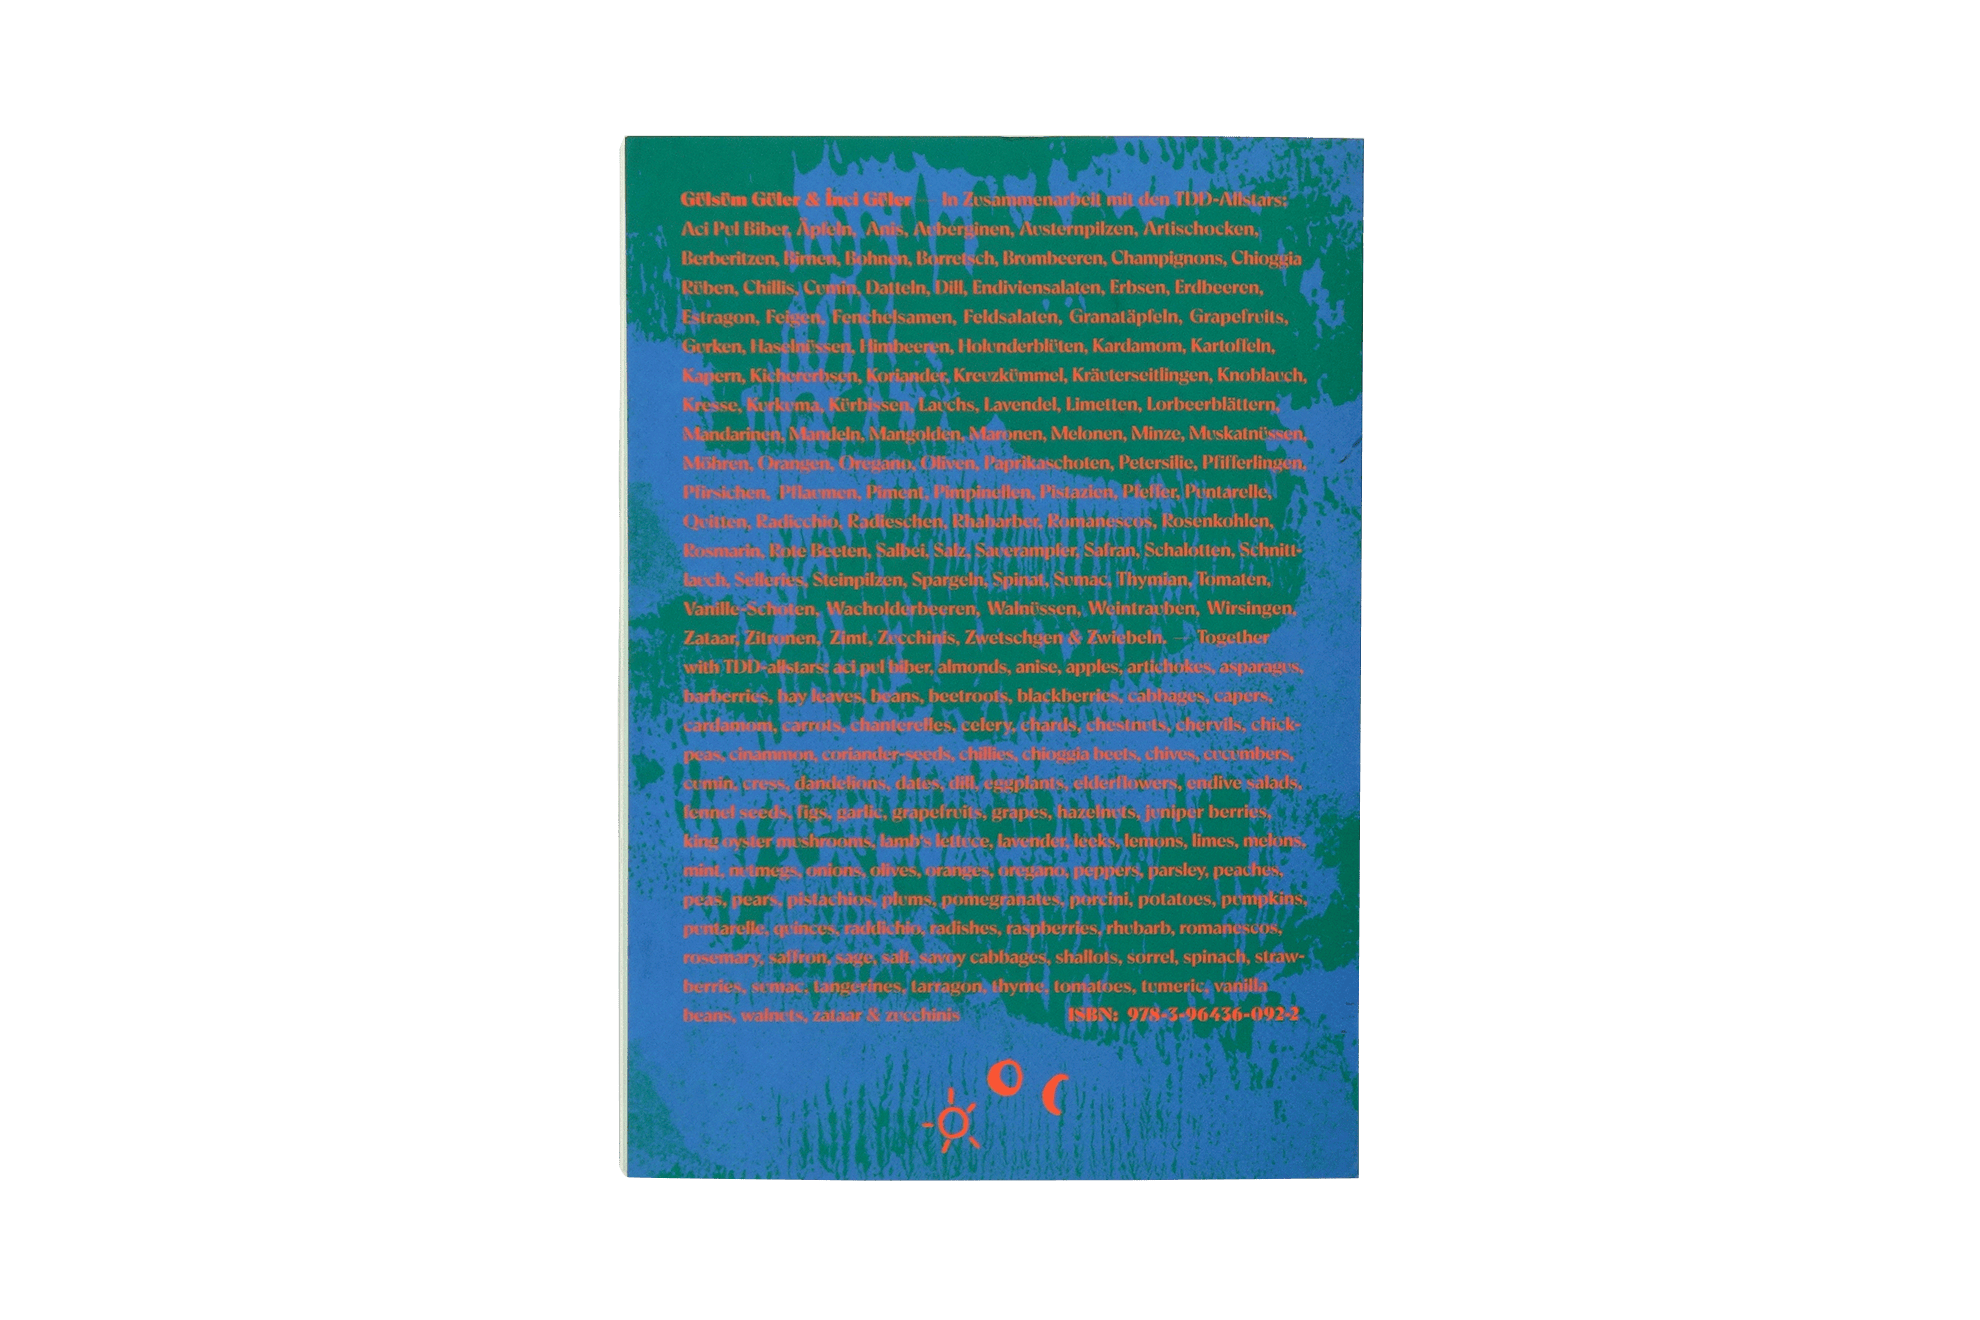 Gülsüm Güler & İnci Güler — In Zusammenarbeit mit den TDD-Allstars:
Aci Pul Biber, Äpfeln, Anis, Auberginen, Austernpilzen, Artischocken,
Berberitzen, Birnen, Bohnen, Borretsch, Brombeeren, Champignons, Chioggia
Rüben, Chillis, Cumin, Datteln, Dill, Endiviensalaten, Erbsen, Erdbeeren,
Estragon, Feigen, Fenchelsamen, Feldsalaten, Granatäpfeln, Grapefruits,
Gurken, Haselnüssen, Himbeeren, Holunderblüten, Kardamom, Kartoffeln,
Kapern, Kichererbsen, Koriander, Kreuzkümmel, Kräuterseitlingen, Knoblauch,
Kresse, Kurkuma, Kürbissen, Lauchs, Lavendel, Limetten, Lorbeerblättern,
Mandarinen, Mandeln, Mangolden, Maronen, Melonen, Minze, Muskatnüssen,
Möhren, Orangen, Oregano, Oliven, Paprikaschoten, Petersilie, Pfifferlingen,
Pfirsichen, Pflaumen, Piment, Pimpinellen, Pistazien, Pfeffer, Puntarelle,
Quitten, Radicchio, Radieschen, Rhabarber, Romanescos, Rosenkohlen,
Rosmarin, Rote Beeten, Salbei, Salz, Sauerampfer, Safran, Schalotten, Schnitt-
lauch, Selleries, Steinpilzen, Spargeln, Spinat, Sumac, Thymian, Tomaten,
Vanille-Schoten, Wacholderbeeren, Walnüssen, Weintrauben, Wirsingen,
Zataar, Zitronen, Zimt, Zucchinis, Zwetschgen & Zwiebeln. — Together
with TDD-allstars: aci pul biber, almonds, anise, apples, artichokes, asparagus,
barberries, bay leaves, beans, beetroots, blackberries, cabbages, capers,
cardamom, carrots, chanterelles, celery, chards, chestnuts, chervils, chick-
peas, cinammon, coriander-seeds, chillies, chioggia beets, chives, cucumbers,
cumin, cress, dandelions, dates, dill, eggplants, elderflowers, endive salads,
fennel seeds, figs, garlic, grapefruits, grapes, hazelnuts, juniper berries,
king oyster mushrooms, lamb's lettuce, lavender, leeks, lemons, limes, melons,
mint, nutmegs, onions, olives, oranges, oregano, peppers, parsley, peaches,
peas, pears, pistachios, plums, pomegranates, porcini, potatoes, pumpkins,
puntarelle, quinces, raddichio, radishes, raspberries, rhubarb, romanescos,
rosemary, saffron, sage, salt, savoy cabbages, shallots, sorrel, spinach, straw-
berries, sumac, tangerines, tarragon, thyme, tomatoes, tumeric, vanilla
beans, walnuts, zataar & zucchinis ISBN: 978-3-96436-092-2